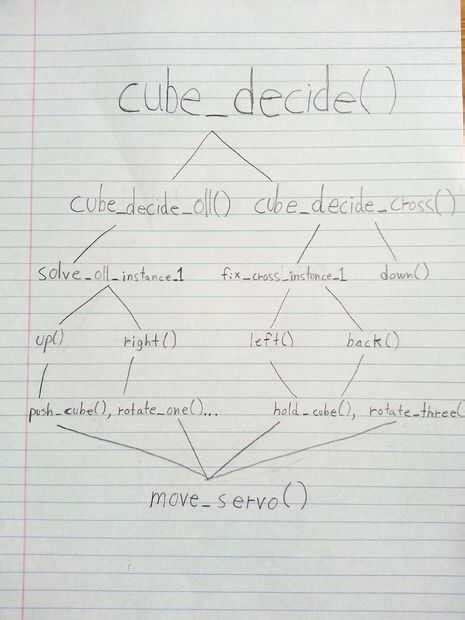 cube_decide()
cube_decide_oll() cube_decide_cross()
solve_oll_instance_1 fix_cross_instance_1 down()
up() right() left() back()
push_cube(), rotate_one()... hold_cube(), rotate_three(
move_servo()